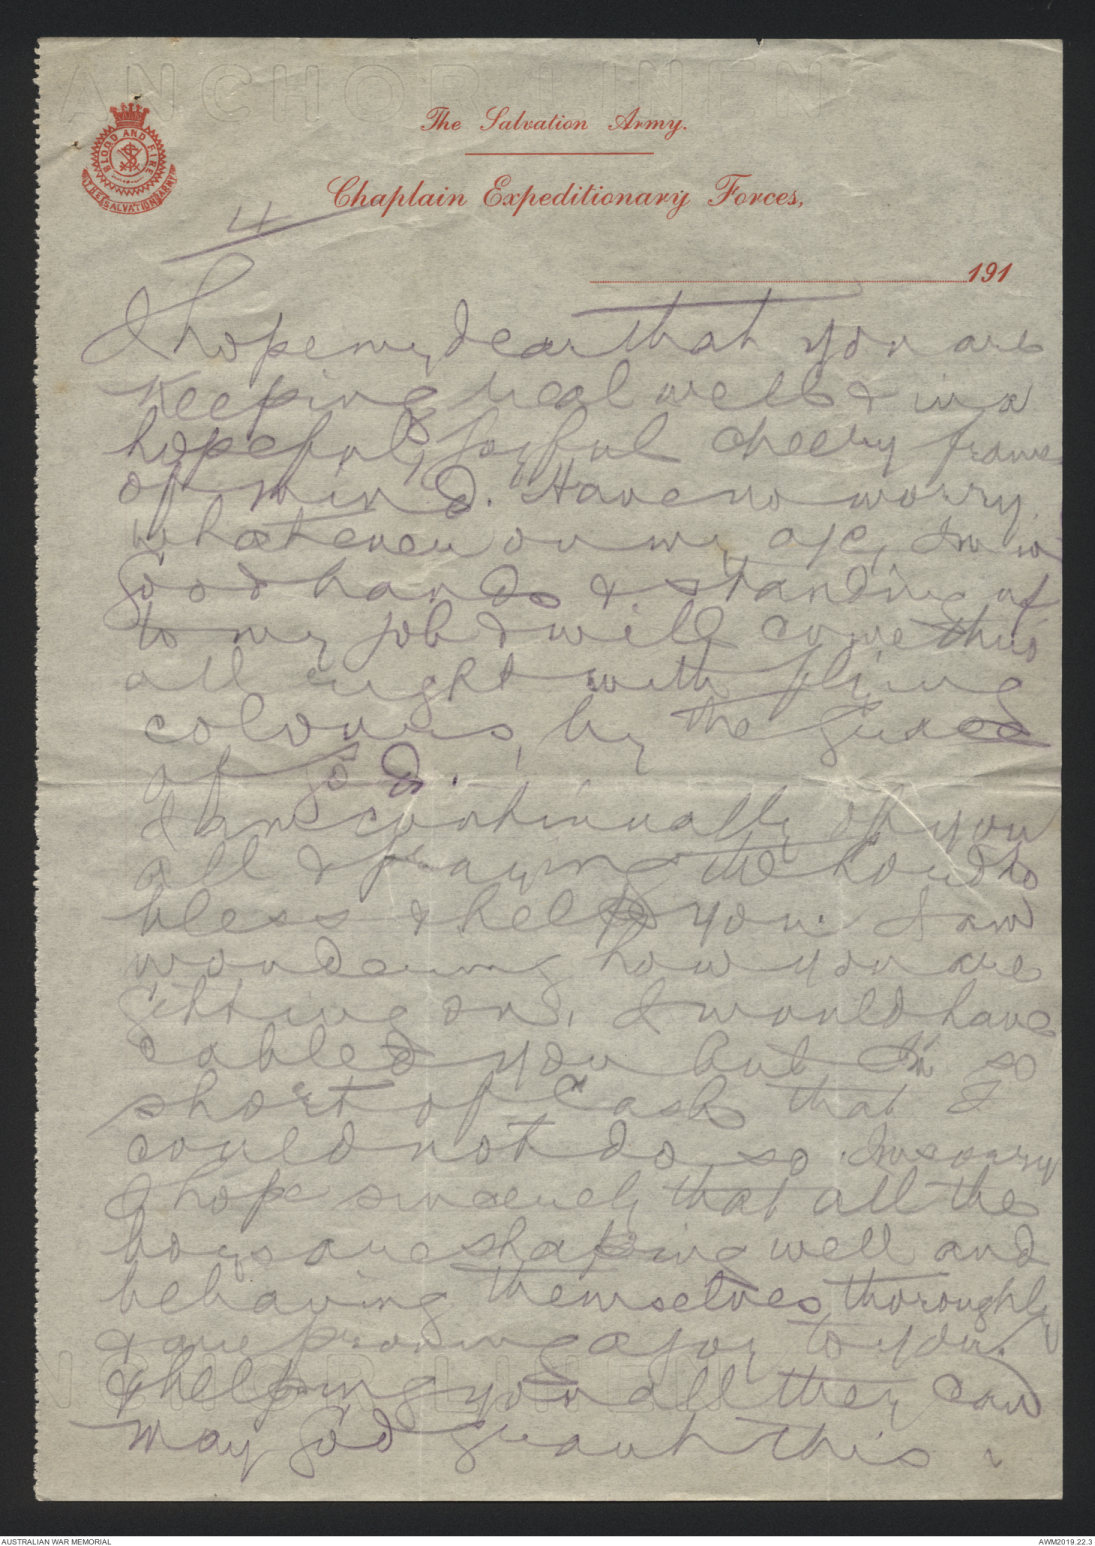 ANCHOR LINEN
The Salvation Army.
BLOOD AND FIRE
THE SALVATION ARMY
Chaplain Expeditionary Forces,
4
191
I hope my dear that you are
keeping real well & in a
hopeful, joyful cheery frame
of mind. Have no worry
whatever on my a/c, Im in
Good hands & standing up
to my job & will come thro
all right with flying
colours, by the Guid
of God.
I am continually of you
all & praying the Lord to
bless & help you. I am
wondering how you are
getting on, I would have
cabled you but Im so
short of Cash that I
could not do so. Im sorry
I hope sincerely that all the
boys are shaping well and
behaving themselves thoroughly
& are proving a joy to you.
& helping you all they can
May God grant this
ANCHOR LINEN
AUSTRALIAN WAR MEMORIAL
AWM2019.22.3